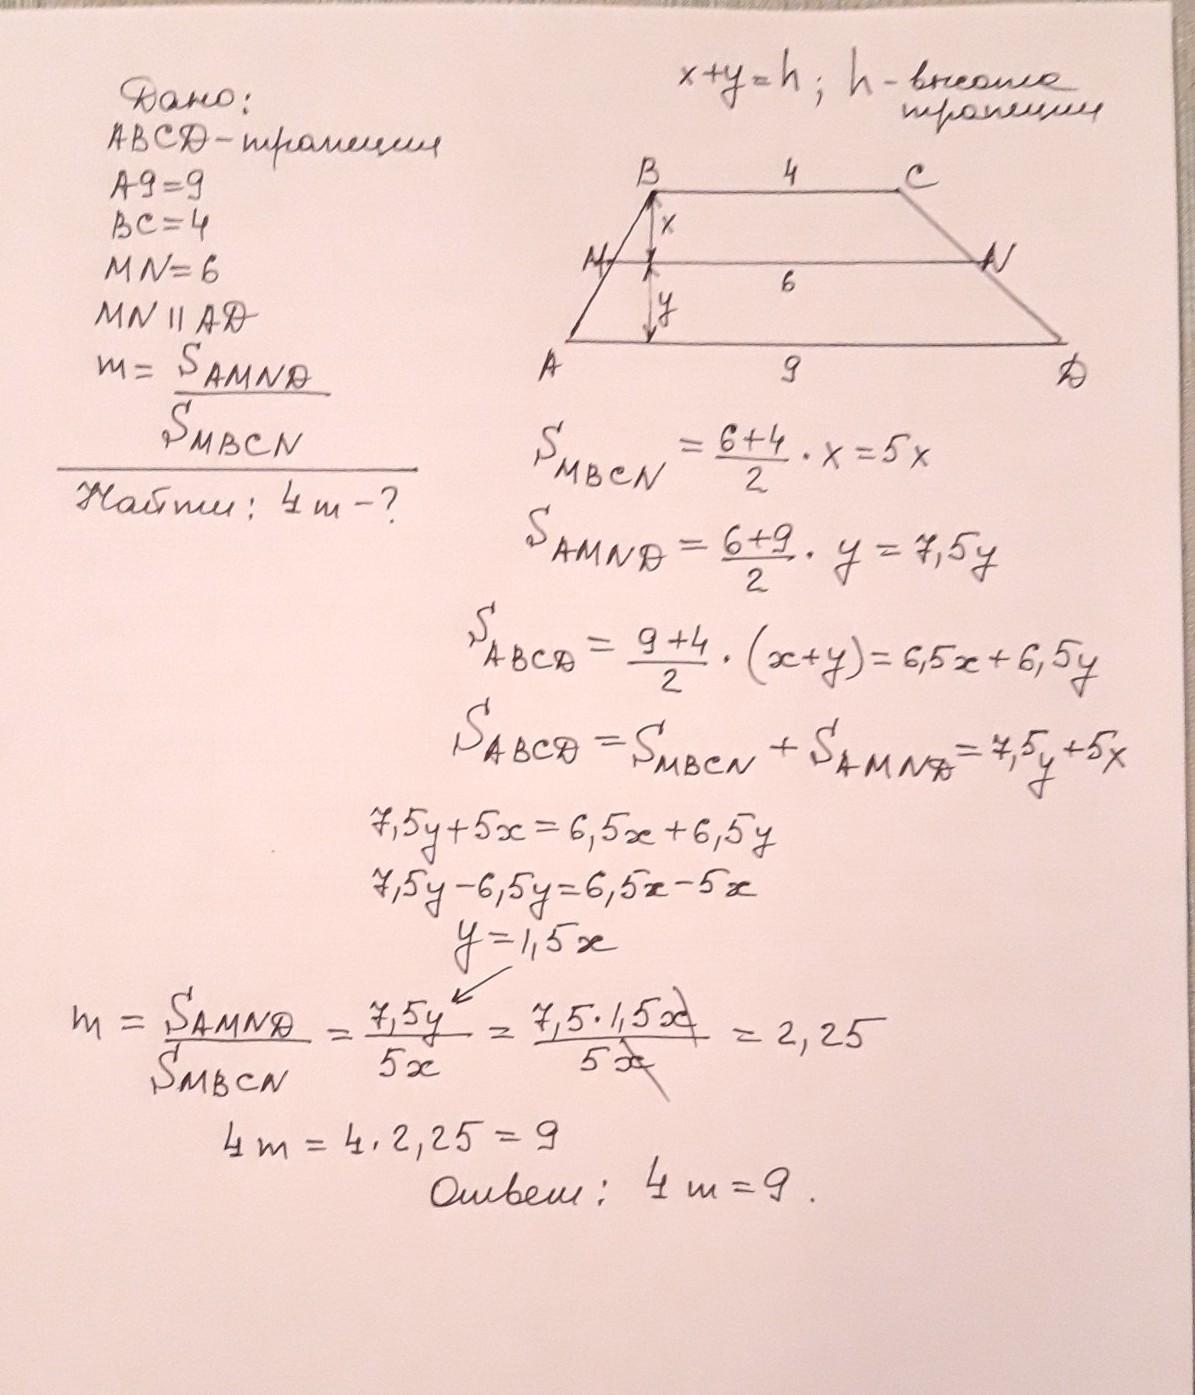 Дано:
ABCD - трапеция
A9 = 9
BC = 4
MN = 6
MN || AD
m = S AMND
S MBCN
Найти: 4m - ?
x+y=h; h - высота
трапеции
B 4 C
x
M N
6
y
A 9 D
S MBCN = 6+4/2 · x = 5x
S AMND = 6+9/2 · y = 7,5y
S ABCD = 9+4/2 · (x+y) = 6,5x + 6,5y
S ABCD = S MBCN + S AMND = 7,5y + 5x
7,5y + 5x = 6,5x + 6,5y
7,5y - 6,5y = 6,5x - 5x
y = 1,5x
m = S AMND / S MBCN = 7,5y / 5x = 7,5·1,5x / 5x = 2,25
4m = 4·2,25 = 9
Ответ: 4m = 9.